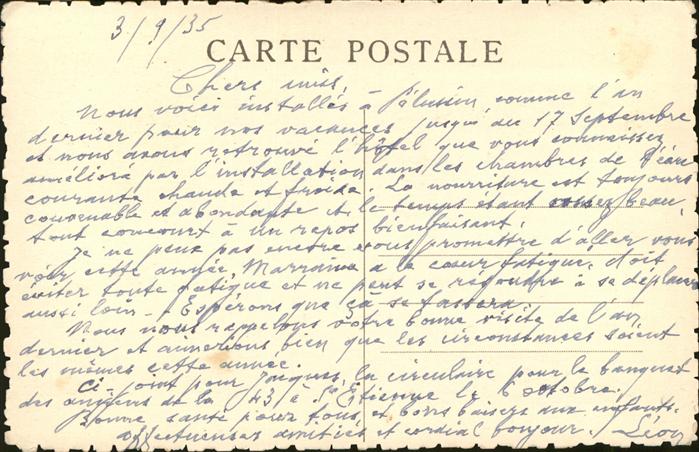 3/9/35
CARTE POSTALE
Chers amis,
Nous voici installés à Pélussin, comme l'an
dernier pour nos vacances, jusqu'au 17 Septembre
et nous avons retrouvé l'hôtel que vous connaissez
amélioré par l'installation dans les chambres de l'eau
courante chaude et froide. La nourriture est toujours
convenable et abondante et le temps étant assez beau,
tout concourt à un repos bienfaisant.
Je ne peux pas encore vous promettre d'aller vous
voir cette année, Marraine a le cœur fatigué, doit
éviter toute fatigue et ne peut se résoudre à se déplacer
aussi loin - Espérons que ça se passera.
Nous nous rappelons votre bonne visite de l'an
dernier et aimerions bien que les circonstances soient
les mêmes cette année.
Ci-joint pour Jacques, la circulaire pour le banquet
des anciens de la 43 à St Etienne le 6 octobre.
Bonne santé pour tous et bons baisers aux enfants.
Affectueuses amitiés et cordial bonjour. Léon